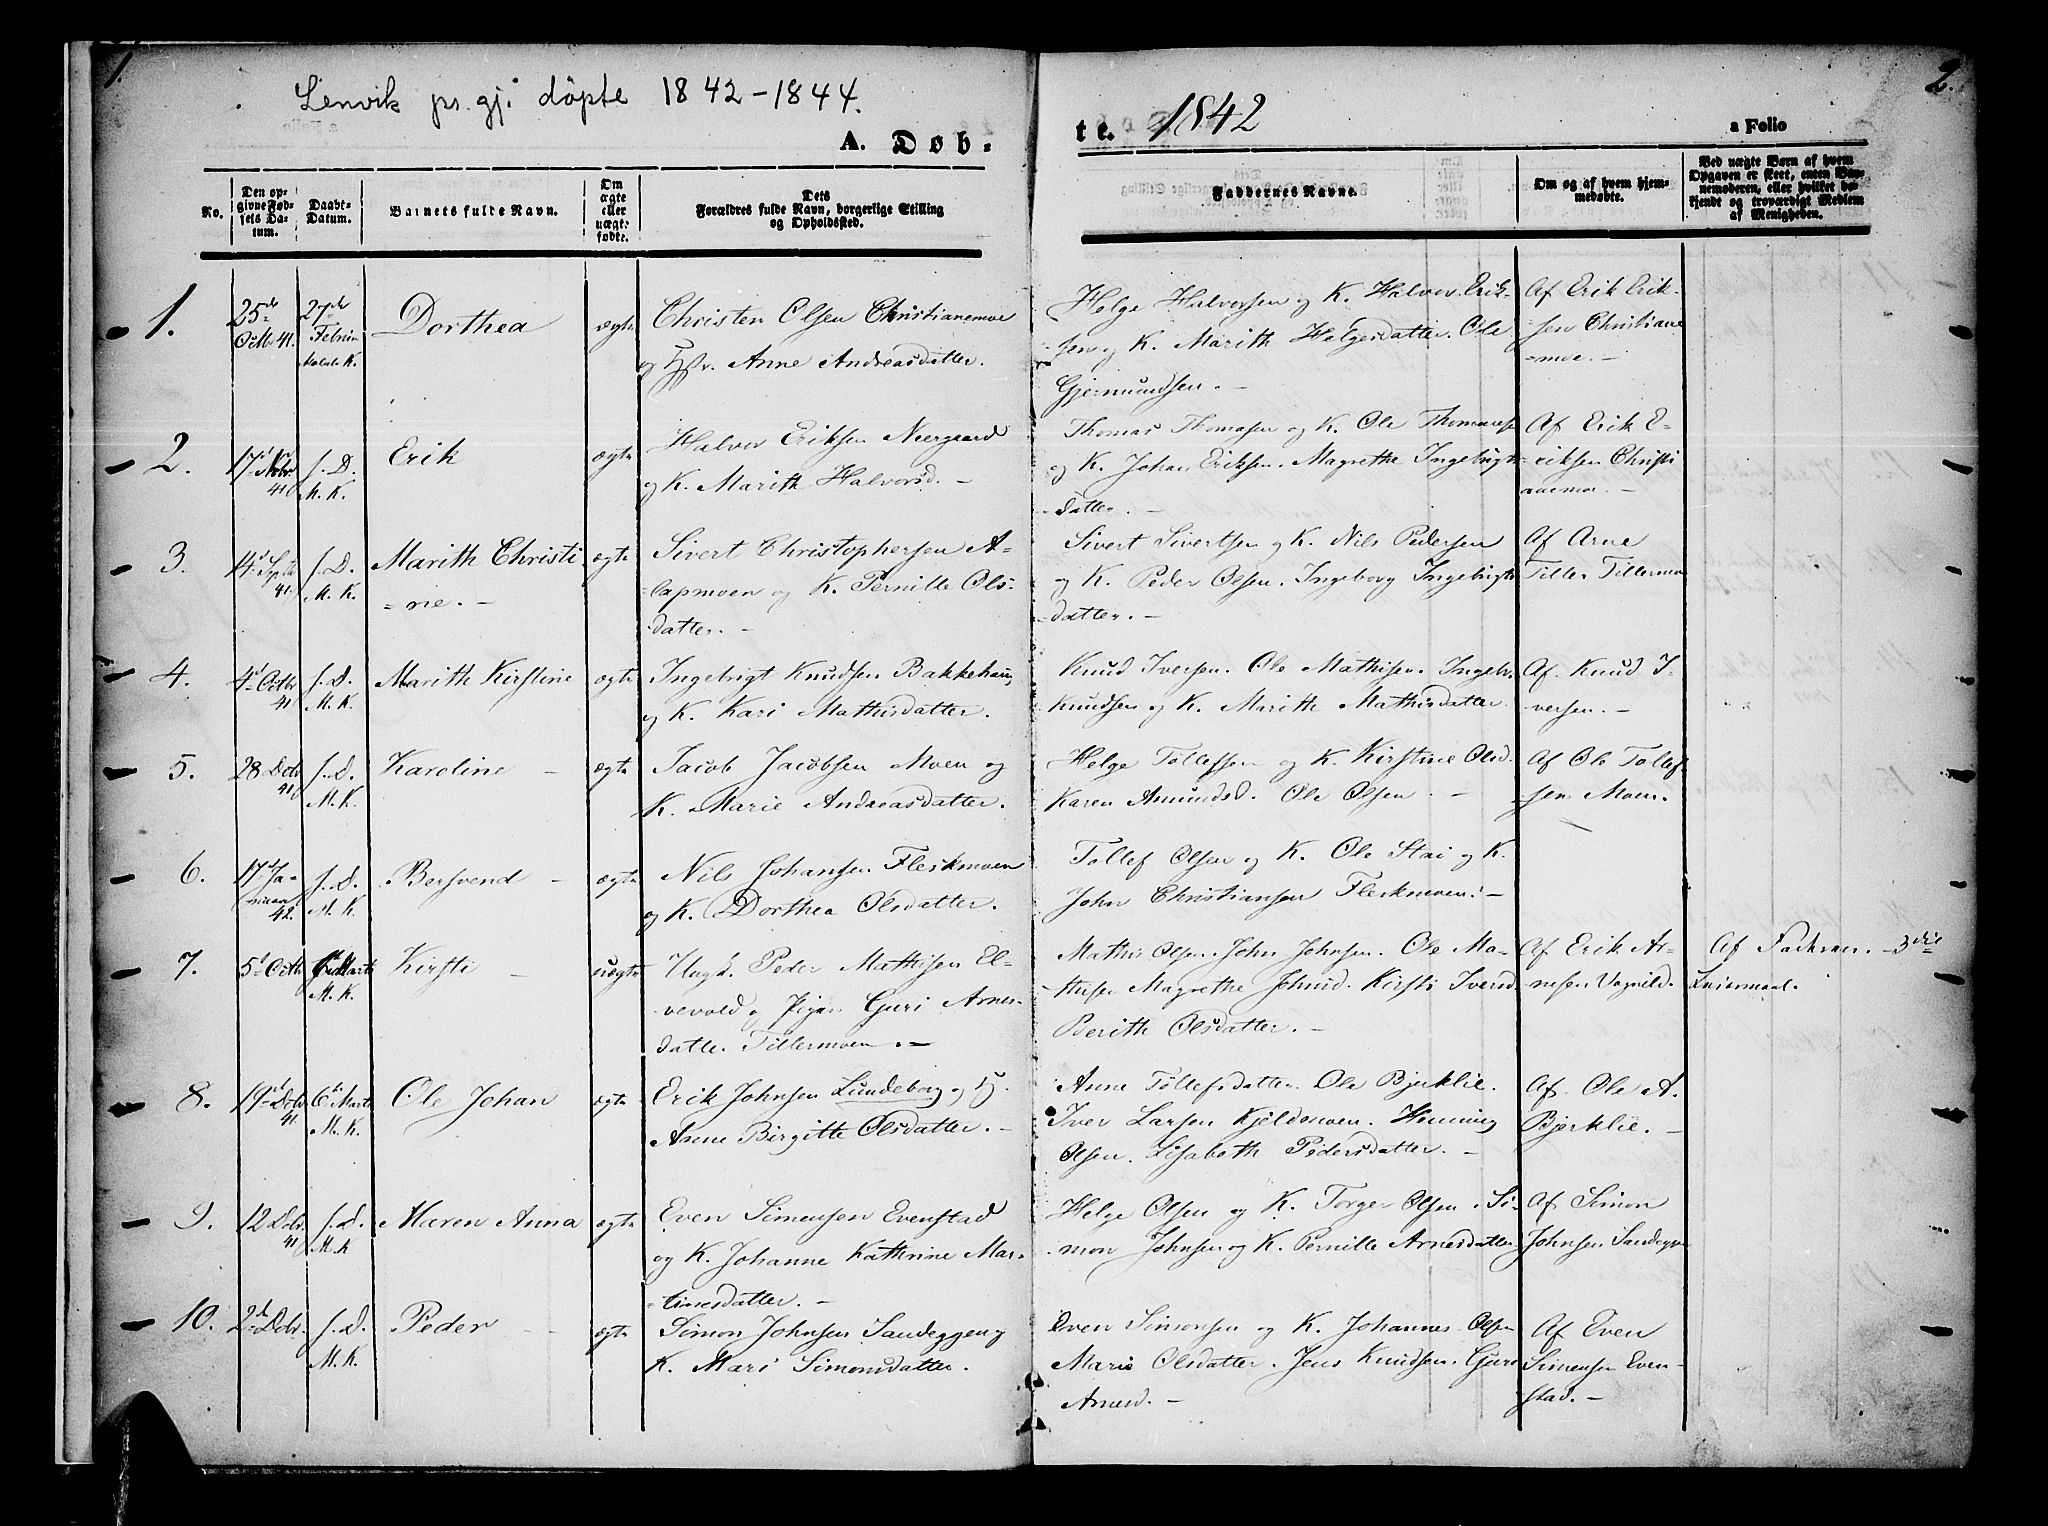 1.
2.
Lenvik pr.gj. døpte 1842-1844.
A. Døb-
te. 1842
a Folio
No.
Den op-
givne Fød-
sels Da-
tum.
Daabs-
Datum.
Barnets fulde Navn.
Om
ægte
eller
uægte
fødte.
Dets
Forældres fulde Navn, borgerlige Stilling
og Opholdssted.
Faddernes Navne.
Om og af hvem hjem-
medøbte.
Ved uægte Børn af hvem
Opgaven er skeet, enten Bar-
nemoderen, eller hvilket be-
kjendt og troværdigt Medlem
af Menigheden.
1.
25de
Octbr 41.
27de
Februar
Dorthea
ægte
Christen Olsen Christianemoe
og Hstr. Anne Andreasdatter.
Helge Halvorsen og K. Halvor Erik-
sen og K. Marith Helgesdatter. Ole
Gjermundsen. –
Af Erik Erik-
sen Christiane
=moe. –
2.
17d Nvbr
41
s. D.
M. K.
Erik
ægte
Halvor Eriksen Neergaard
og K. Marith Halvorsd. –
Thomas Thomasen og K. Ole Thomasen
og K. Johan Eriksen. Magrethe Ingebrigts
datter. –
Af Erik E-
=riksen Christi
anemoe. –
3.
14d Septbr
41.
s. D.
M. K.
Marith Christi
=ne. –
ægte
Sivert Christophersen A-
=lapmoen og K. Pernille Ols-
datter. –
Sivert Sivertsen og K. Nils Pedersen
og K. Peder Olsen. Ingeborg Ingebrigts
datter. –
Af Arne
Tiller Tillermo
4.
4d Octbr
41
s. D.
M. K.
Marith Kirstine
ægte
Ingebrigt Knudsen Bakkehaug
og K. Kari Mathisdatter.
Knud Iversen. Ole Mathisen. Ingebr.
Knudsen og K. Marith Mathisdatter.
Af Knud I-
versen. –
5.
28 Dcbr
41
s. D.
M. K.
Karoline –
ægte
Jacob Jacobsen Moen og
K. Marie Andreasdatter.
Helge Tollefsen og K. Kirstine Olsd.
Karen Amundsd. Ole Olsen. –
Af Ole Tollef-
sen Moen.
6.
17d Ja-
nuar
42.
s. D.
M. K.
Bersvend –
ægte
Nils Johansen Fleskmoen
og K. Dorthea Olsdatter.
Tollef Olsen og K. Ole Stai og K.
John Christiansen Fleskmoen. –
7.
5d Octbr
M. K.
Kirsti –
uægte
Ungk. Peder Mathisen El-
vevold og Pigen Guri Arnes-
datter Tillermoen. –
Mathis Olsen. John Johnsen. Ole Ma-
thisen Magrethe Johnsd. Kirsti Iversd.
Berith Olsdatter. –
Af Erik Ar-
nesen Vognild.
Af Fadderen. – 3die
Leiermaal.
8.
19d Dcbr
41.
6te Marts
M. K.
Ole Johan
ægte
Erik Johnsen Lundeborg og H.
Anne Birgitte Olsdatter. –
Anne Tollefsdatter. Ole Bjerklie.
Iver Larsen Kjeldsmoen. Henning
Olsen. Lisabeth Pedersdatter. –
Af Ole A.
Bjerklie. –
9.
12 Dcbr.
41
s. D.
M. K
Maren Anna
ægte
Even Simensen Evenstad
og K. Johanne Kathrine Mar-
=tinesdatter. –
Helge Olsen og K. Torger Olsen. Si-
mon Johnsen og K. Pernille Arnesdatter
Af Simon
Johnsen Sandegg
10.
2d Dcbr.
s. D.
M. K.
Peder –
ægte
Simon Johnsen Sandeggen og
K. Mari Simonsdatter.
Even Simonsen og K. Johannes Olsen
Maris Olsdatter. Jens Knudsen. Guri
Arnesd. –
Af Even
Simensen Even-
stad. –